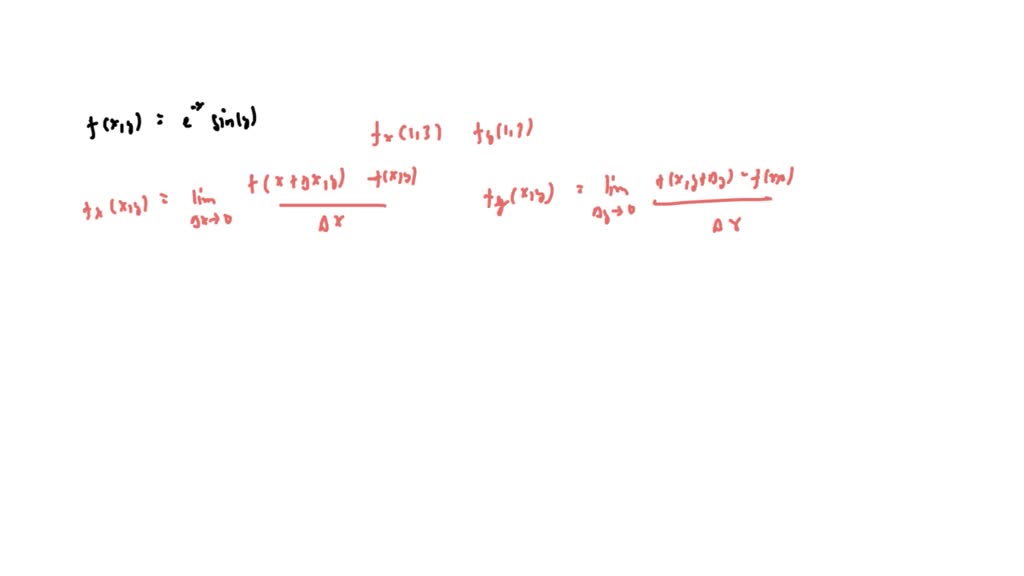 f(x,y) = e^-x sin(y)
f_x(1,3) f_y(1,3)
f_x(x,y) = lim Δx→0 f(x+Δx,y) - f(x,y) / Δx
f_y(x,y) = lim Δy→0 f(x,y+Δy) - / ΔY